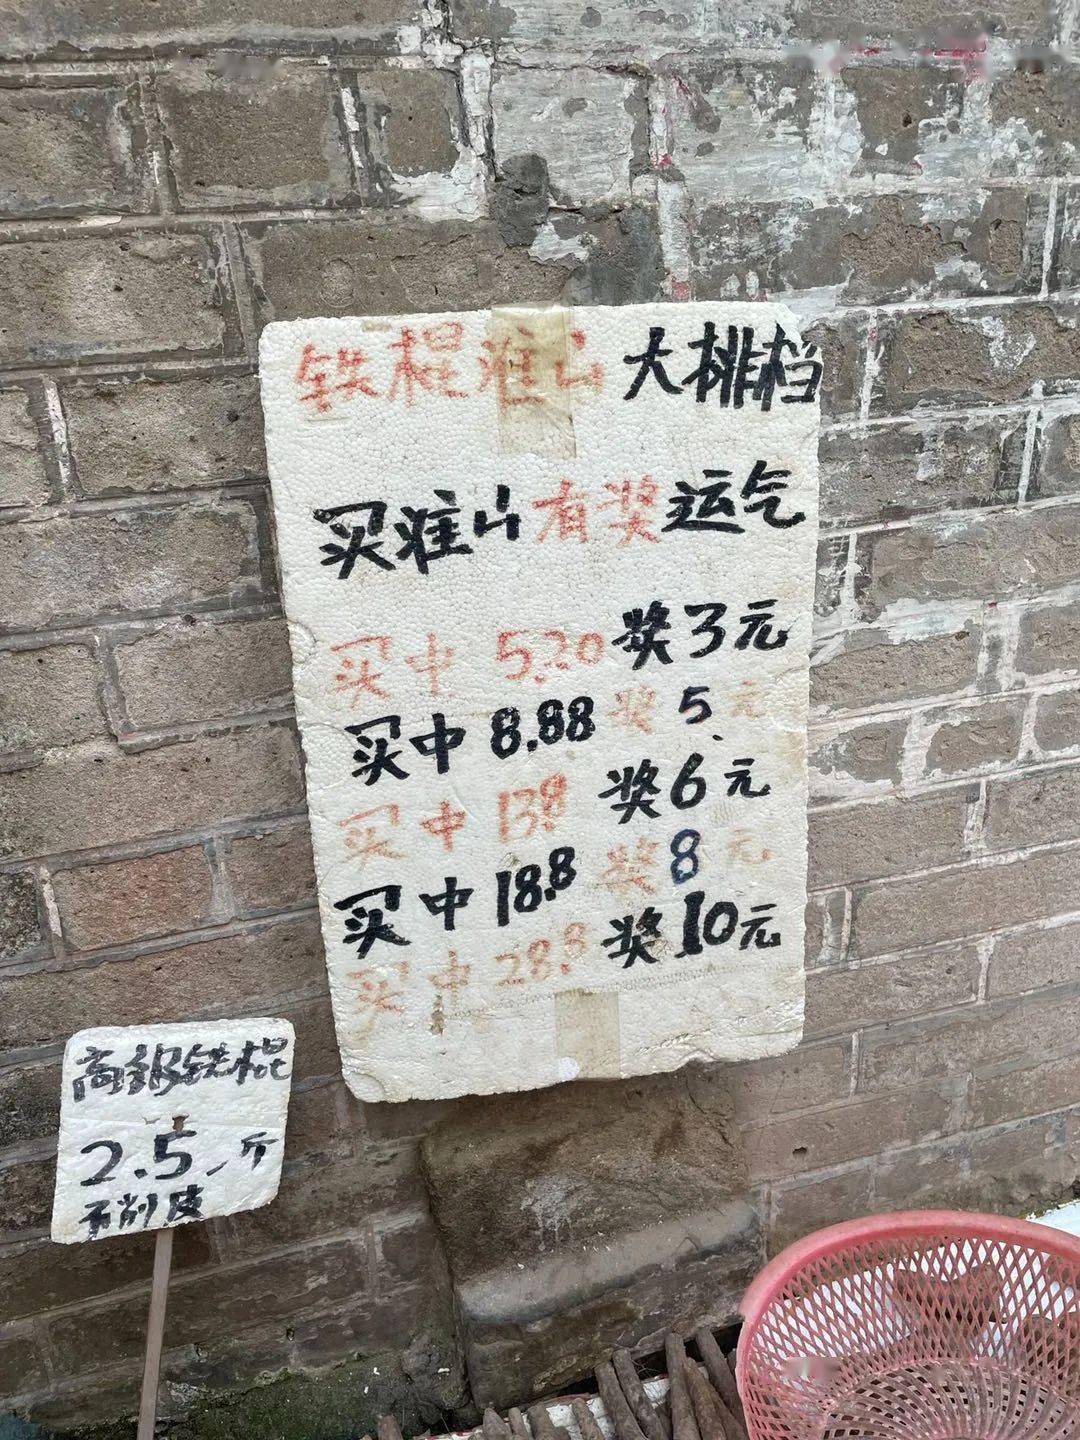 铁棍淮山大排档
买淮山有奖运气
买中 5.20 奖3元
买中 8.88 奖5元
买中 138 奖6元
买中 18.8 奖8元
买中 28.8 奖10元
高级铁棍
2.5一斤
不削皮